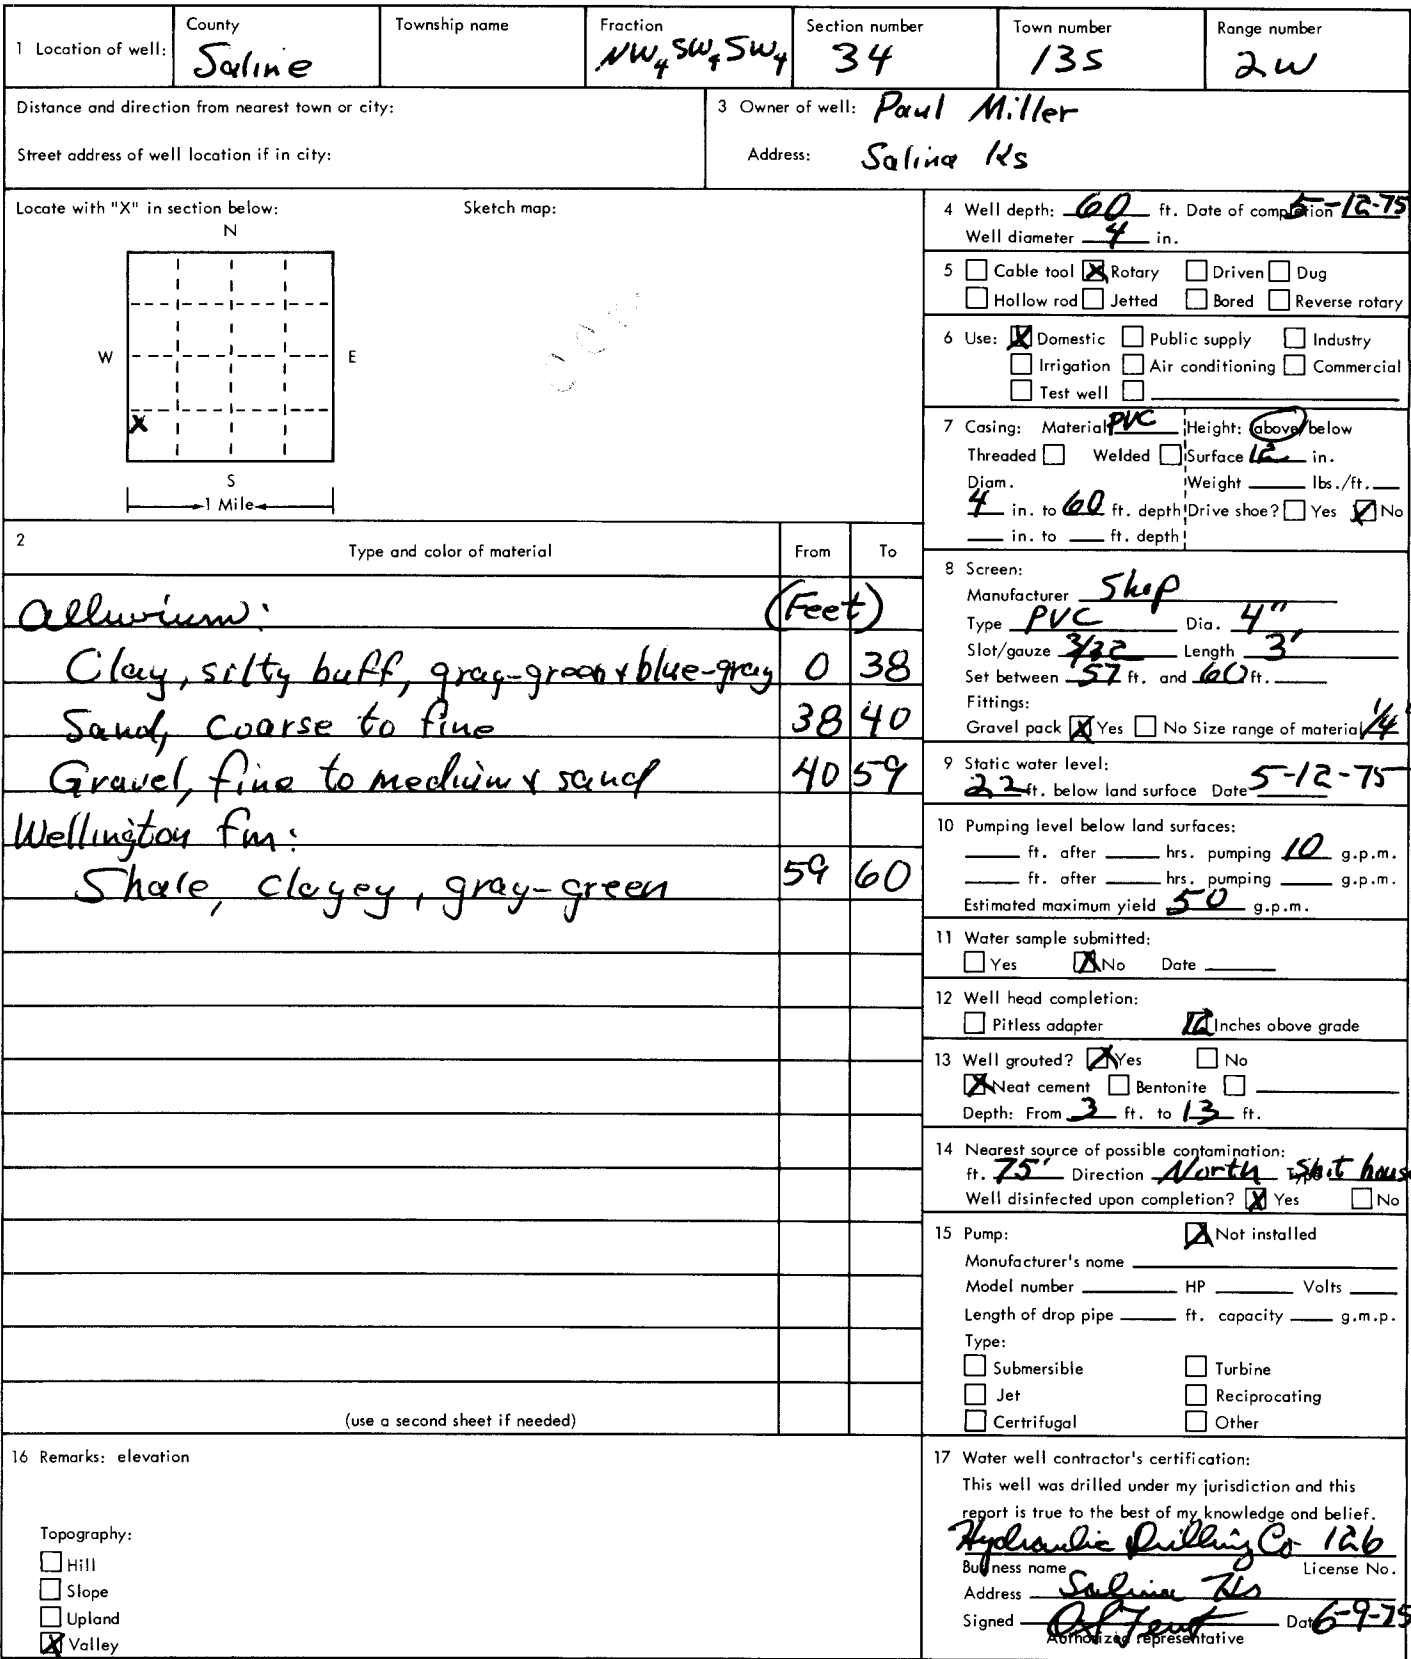 1 Location of well:
County
Saline
Township name
Fraction
NW4 SW4 SW4
Section number
34
Town number
13S
Range number
2W
Distance and direction from nearest town or city:
Street address of well location if in city:
3 Owner of well: Paul Miller
Address: Salina Ks
Locate with "X" in section below:
Sketch map:
N
W
E
X
S
1 Mile
2
Type and color of material
From
To
Alluvium:
(Feet)
Clay, silty buff, gray-green & blue-gray 0 38
Sand, coarse to fine 38 40
Gravel, fine to medium & sand 40 59
Wellington fm:
Shale, clayey, gray-green 59 60
(use a second sheet if needed)
16 Remarks: elevation
Topography:
Hill
Slope
Upland
X Valley
4 Well depth: 60 ft. Date of completion 5-12-75
Well diameter 4 in.
5 Cable tool X Rotary Driven Dug
Hollow rod Jetted Bored Reverse rotary
6 Use: X Domestic Public supply Industry
Irrigation Air conditioning Commercial
Test well
7 Casing: Material PVC Height: above/below
Threaded Welded Surface 12 in.
Diam. Weight lbs./ft.
4 in. to 60 ft. depth Drive shoe? Yes X No
in. to ft. depth
8 Screen:
Manufacturer Shop
Type PVC Dia. 4"
Slot/gauze 3/32 Length 3'
Set between 57 ft. and 60 ft.
Fittings:
Gravel pack X Yes No Size range of material 1/4"
9 Static water level:
22 ft. below land surface Date 5-12-75
10 Pumping level below land surfaces:
ft. after hrs. pumping 10 g.p.m.
ft. after hrs. pumping g.p.m.
Estimated maximum yield 50 g.p.m.
11 Water sample submitted:
Yes X No Date
12 Well head completion:
Pitless adapter 12 Inches above grade
13 Well grouted? X Yes No
X Neat cement Bentonite
Depth: From 3 ft. to 13 ft.
14 Nearest source of possible contamination:
ft. 75' Direction North Type Shit house
Well disinfected upon completion? X Yes No
15 Pump: X Not installed
Manufacturer's name
Model number HP Volts
Length of drop pipe ft. capacity g.m.p.
Type:
Submersible Turbine
Jet Reciprocating
Certrifugal Other
17 Water well contractor's certification:
This well was drilled under my jurisdiction and this
report is true to the best of my knowledge and belief.
Hydraulic Drilling Co 126
Business name License No.
Address Salina Ks
Signed Date 6-9-75
Authorized representative